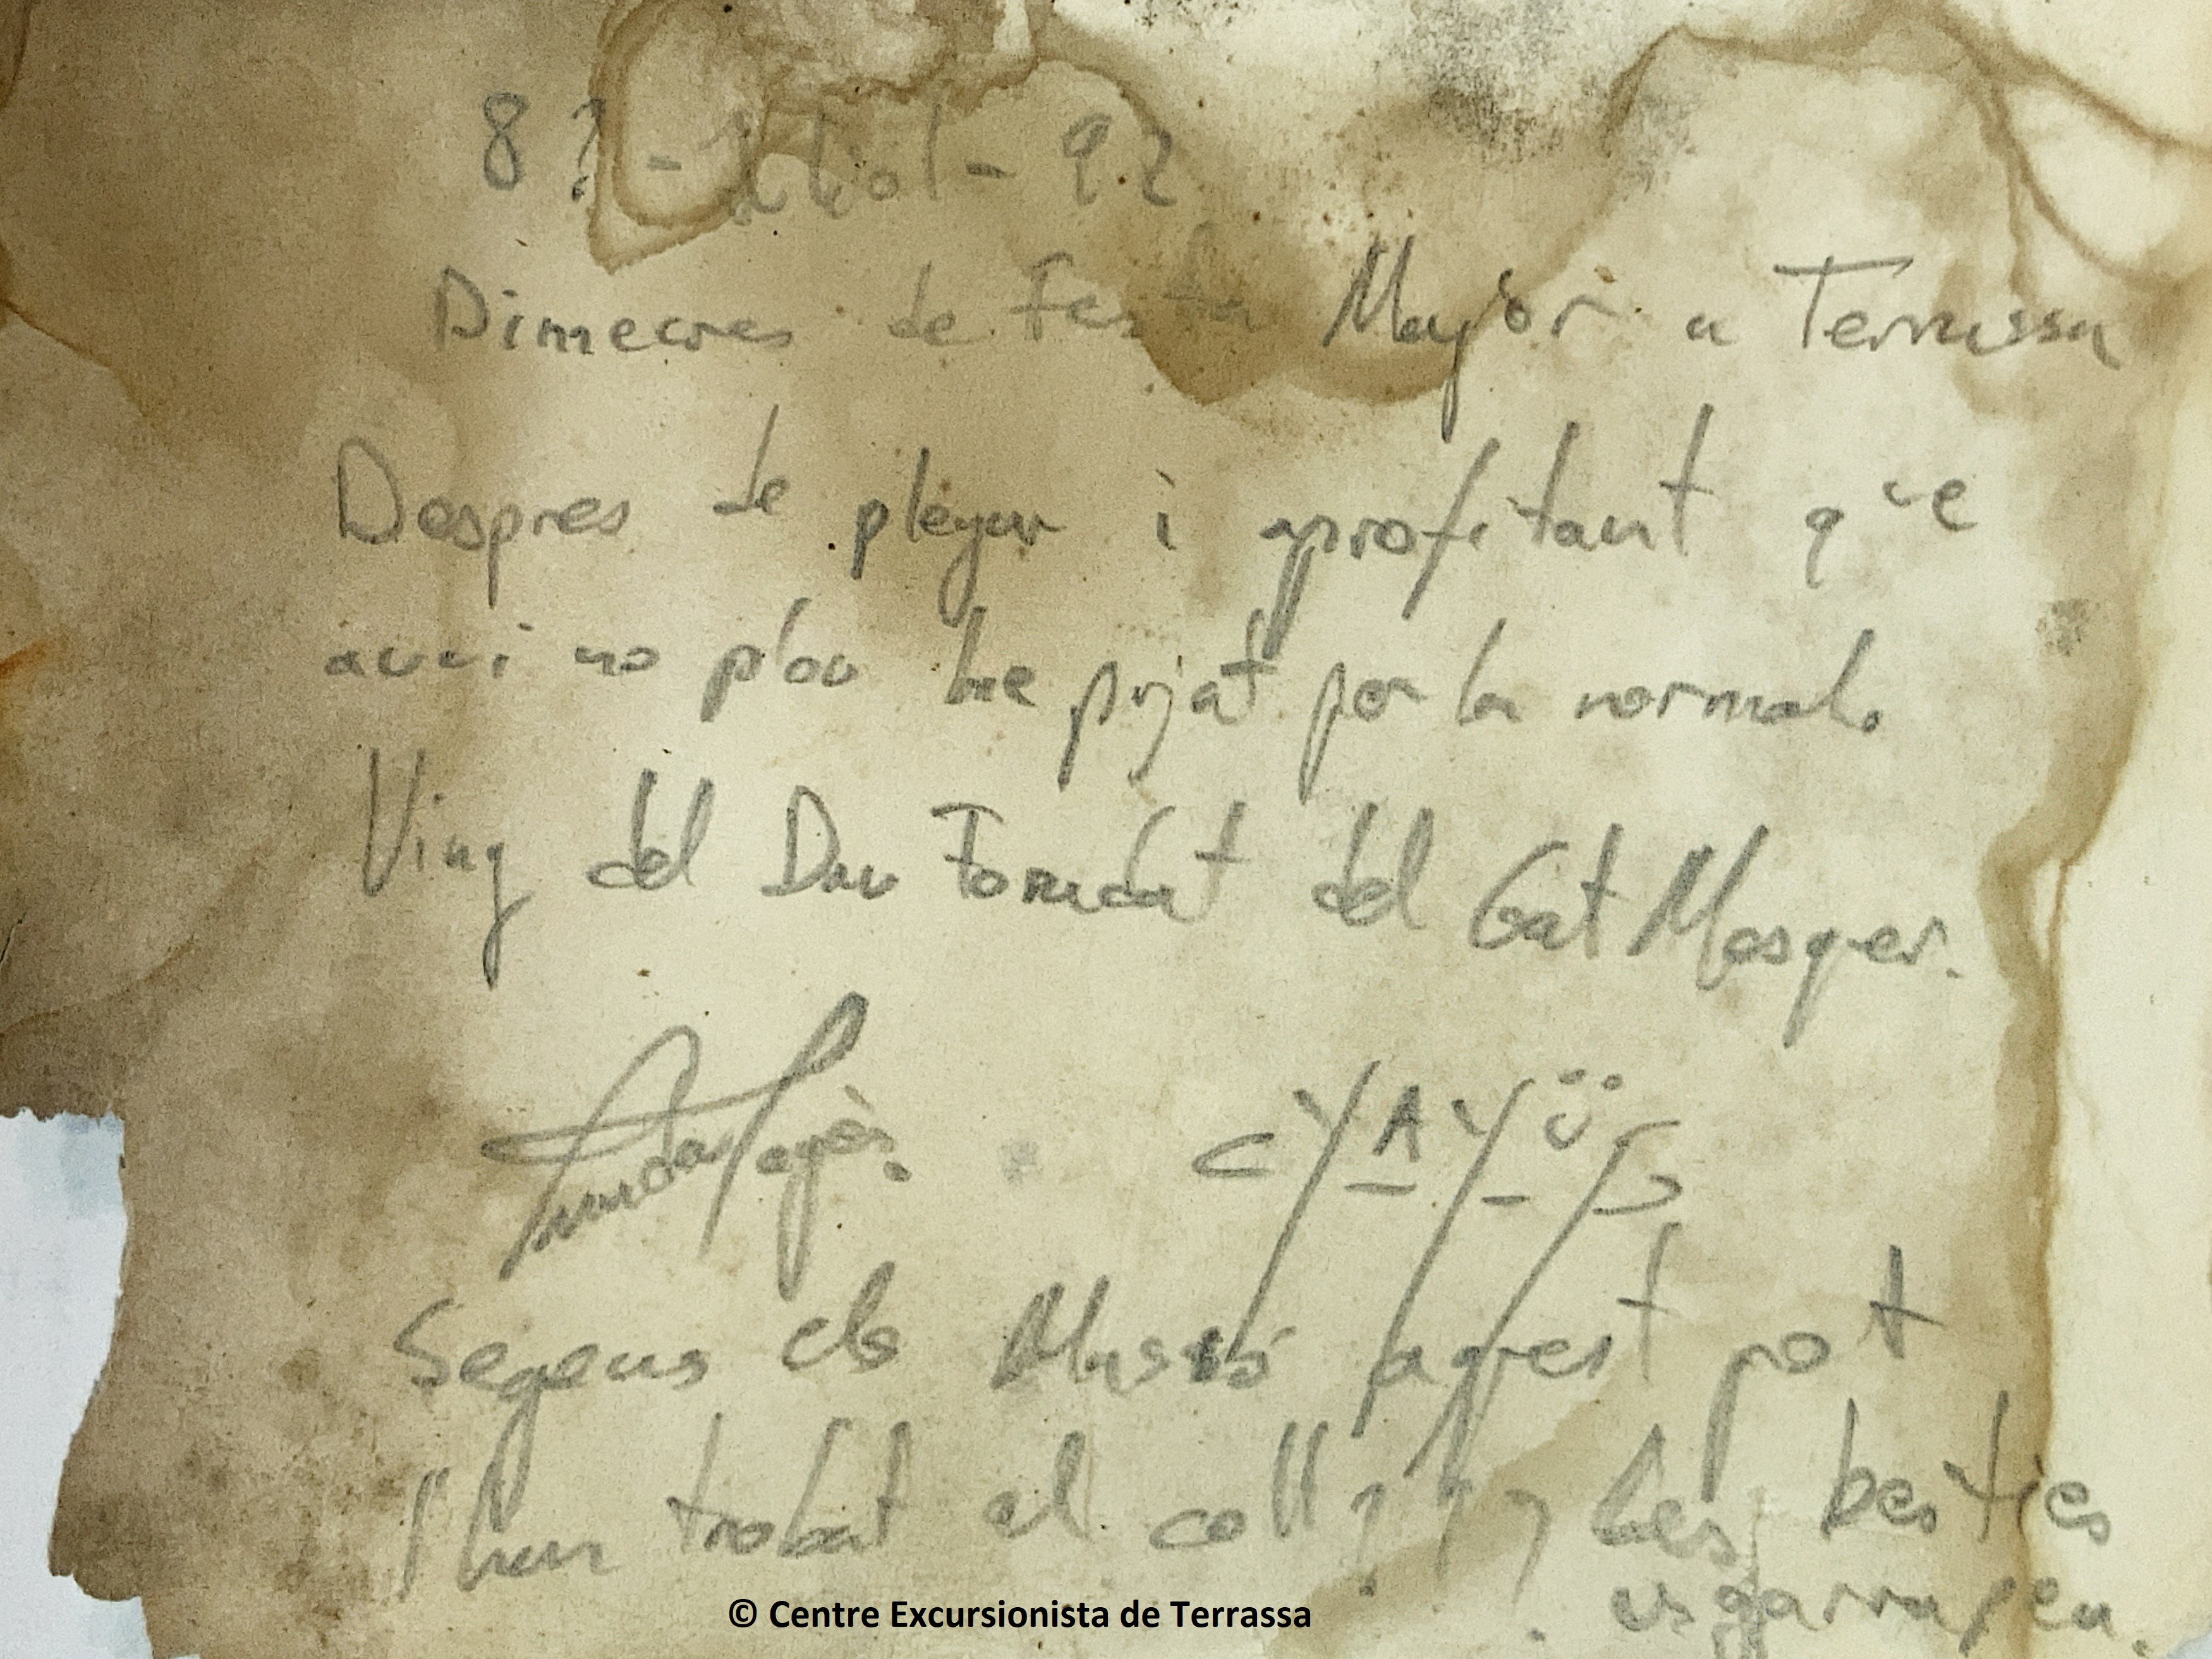 8? - Juliol - 92
Dimecres de Festa Major a Terrassa
Despres de plegar i aprofitant que
avui no plou he pujat per la normal.
Ving del Dau Foradat del Gat Mesquer.
Pagès.
Segons els Massó aquest pot
l'han trobat al coll??? Les besties
esgarrapen.
© Centre Excursionista de Terrassa